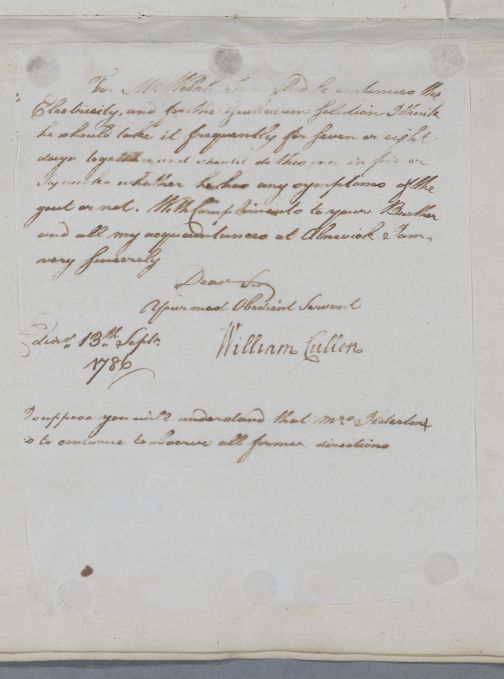 For Mr Welsh I am glad he continues the
Electricity, and for the Guaiacum Solution I think
he should take it frequently for seven or eight
days together and should do this once in five or
Six weeks whether he has any symptoms of the
gout or not. With Compliments to your Brother
and all my acquaintances at Alnwick I am,
very sincerely
Dear Sir
Your most Obedient Servant
Edinr. 13th. Septr. William Cullen
1786
I suppose you will understand that Mrs Ilderton
is to continue to observe all former directions